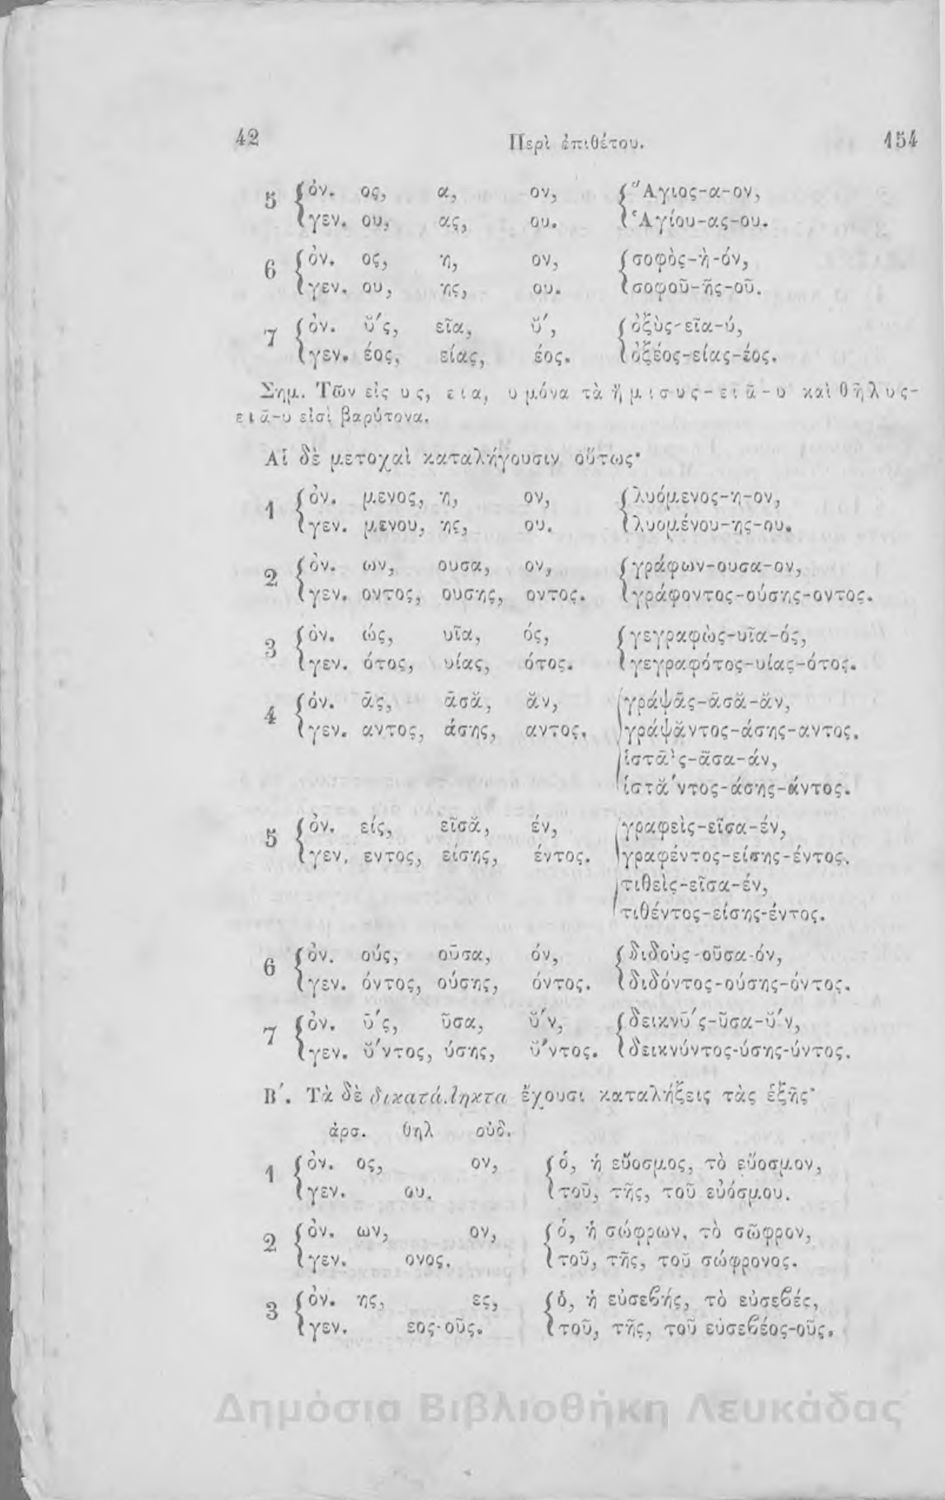 42 Περὶ ἐπιθέτου. 154
5 {ὀν. ος, α, ον, {Ἅγιος-α-ον,
{γεν. ου, ας, ου. {Ἁγίου-ας-ου.
6 {ὀν. ος, η, ον, {σοφὸς-ὴ-όν,
{γεν. ου, ης, ου. {σοφοῦ-ῆς-οῦ.
7 {ὀν. ῠ́ς, εῖα, ῠ́, {ὀξὺς-εῖα-ύ,
{γεν. έος, είας, έος. {ὀξέος-είας-έος.
Σημ. Τῶν εἰς υς, εια, υ μόνα τὰ ἥμισυς-ειᾰ-υ καὶ θῆλυς-
ειᾰ-υ εἰσὶ βαρύτονα.
Αἱ δὲ μετοχαὶ καταλήγουσιν οὕτως·
1 {ὀν. μενος, η, ον, {λυόμενος-η-ον,
{γεν. μενου, ης, ου. {λυομένου-ης-ου.
2 {ὀν. ων, ουσα, ον, {γράφων-ουσα-ον,
{γεν. οντος, ουσης, οντος. {γράφοντος-ούσης-οντος.
3 {ὀν. ώς, υῖα, ός, {γεγραφὼς-υῖα-ός,
{γεν. ότος, υίας, ότος. {γεγραφότος-υίας-ότος.
4 {ὀν. ᾱς, ᾱσᾰ, ᾰν, {γράψᾱς-ᾱσᾰ-ᾰν,
{γεν. αντος, άσης, αντος. {γράψᾰντος-άσης-αντος.
{ἱστᾱ̀ς-ᾶσα-άν,
{ἱστᾰ́ντος-άσης-άντος.
5 {ὀν. είς, εῖσᾰ, έν, {γραφεὶς-εῖσα-έν,
{γεν. εντος, είσης, έντος. {γραφέντος-είσης-έντος.
{τιθεὶς-εῖσα-έν,
{τιθέντος-είσης-έντος.
6 {ὀν. ούς, οῦσα, όν, {διδοὺς-οῦσα-όν,
{γεν. όντος, ούσης, όντος. {διδόντος-ούσης-όντος.
7 {ὀν. ῡ́ς, ῦσα, ῠ́ν, {δεικνῡ́ς-ῦσα-ῠ́ν,
{γεν. ῠ́ντος, ύσης, ῠ́ντος. {δεικνύντος-ύσης-ύντος.
Β΄. Τὰ δὲ δικατάληκτα ἔχουσι καταλήξεις τὰς ἑξῆς·
ἀρσ. θηλ οὐδ.
1 {ὀν. ος, ον, {ὁ, ἡ εὔοσμος, τὸ εὔοσμον,
{γεν. ου. {τοῦ, τῆς, τοῦ εὐόσμου.
2 {ὀν. ων, ον, {ὁ, ἡ σώφρων, τὸ σῶφρον,
{γεν. ονος. {τοῦ, τῆς, τοῦ σώφρονος.
3 {ὀν. ης, ες, {ὁ, ἡ εὐσεϐής, τὸ εὐσεϐές,
{γεν. εος-οῦς. {τοῦ, τῆς, τοῦ εὐσεϐέος-οῦς.
Δημόσια Βιβλιοθήκη Λευκάδας